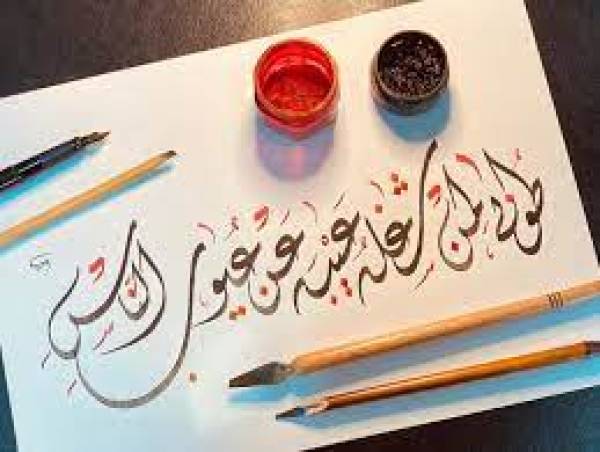 طوبى لمن شغله عيبه عن عيوب الناس